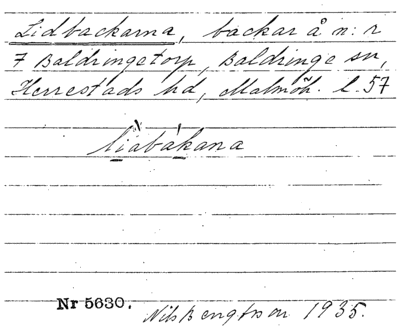 Lidbackarna, backar å n:r
7 Baldringetorp, Baldringe sn,
Herrestads hd, Malmöh. l. 57
liábákana
Nr 5630. Nils Bengtsson 1935.